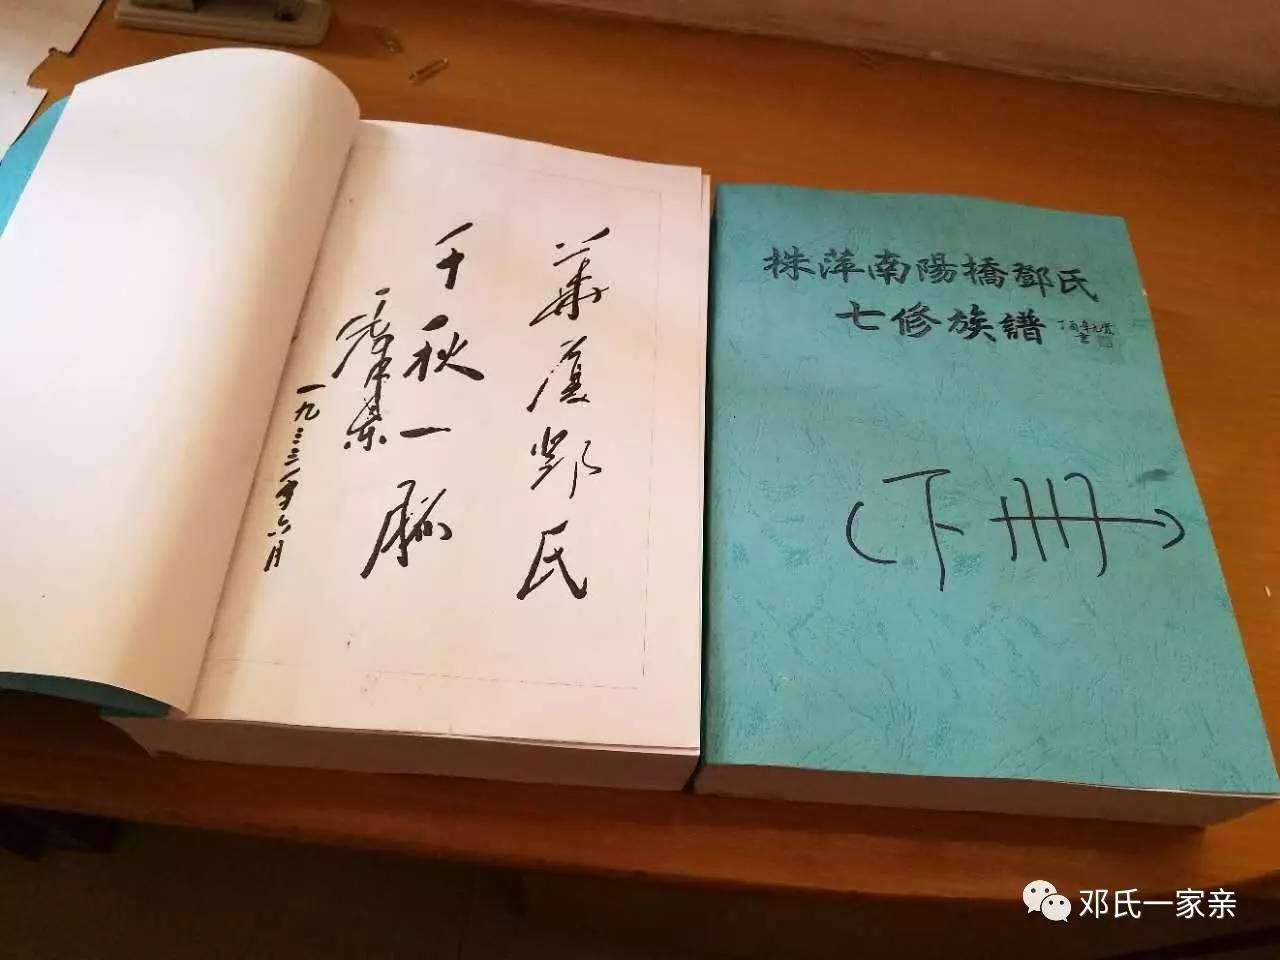 華厦鄧氏
千秋一脈
一九九三年六月
株萍南陽橋鄧氏
七修族譜
丁酉年
(下册)
邓氏一家亲